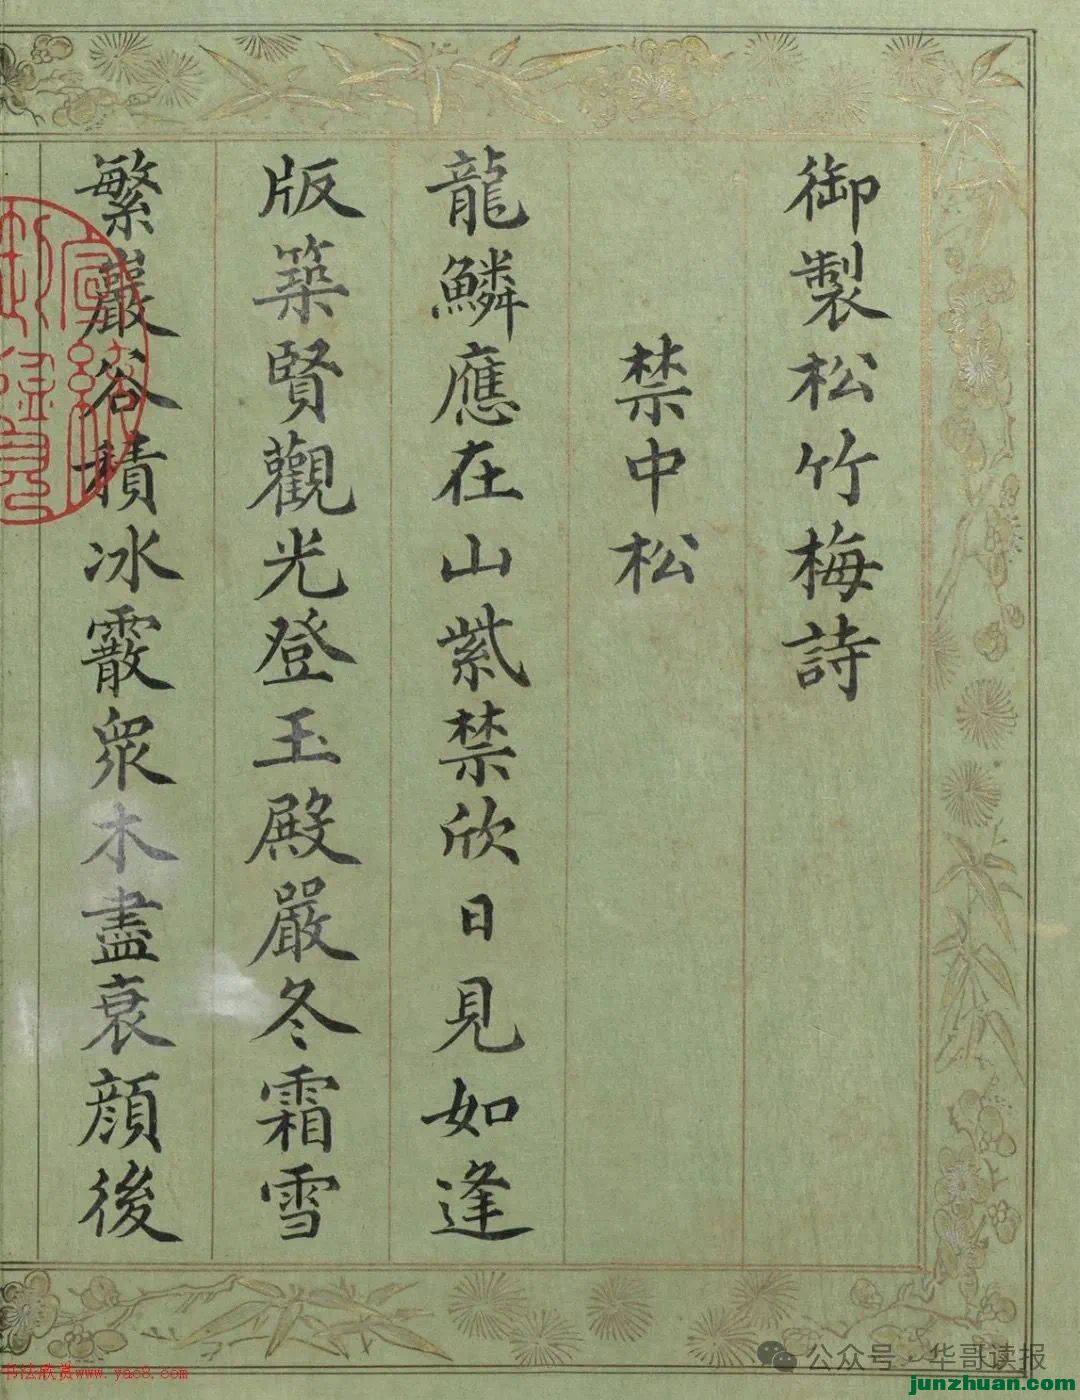 御製松竹梅詩
禁中松
龍鱗應在山紫禁欣日見如逢
版築賢觀光登玉殿嚴冬霜雪
繁巖谷積冰霰衆木盡衰顔後
书法欣赏www.yac8.com
公众号·华哥读报
junzhuan.com